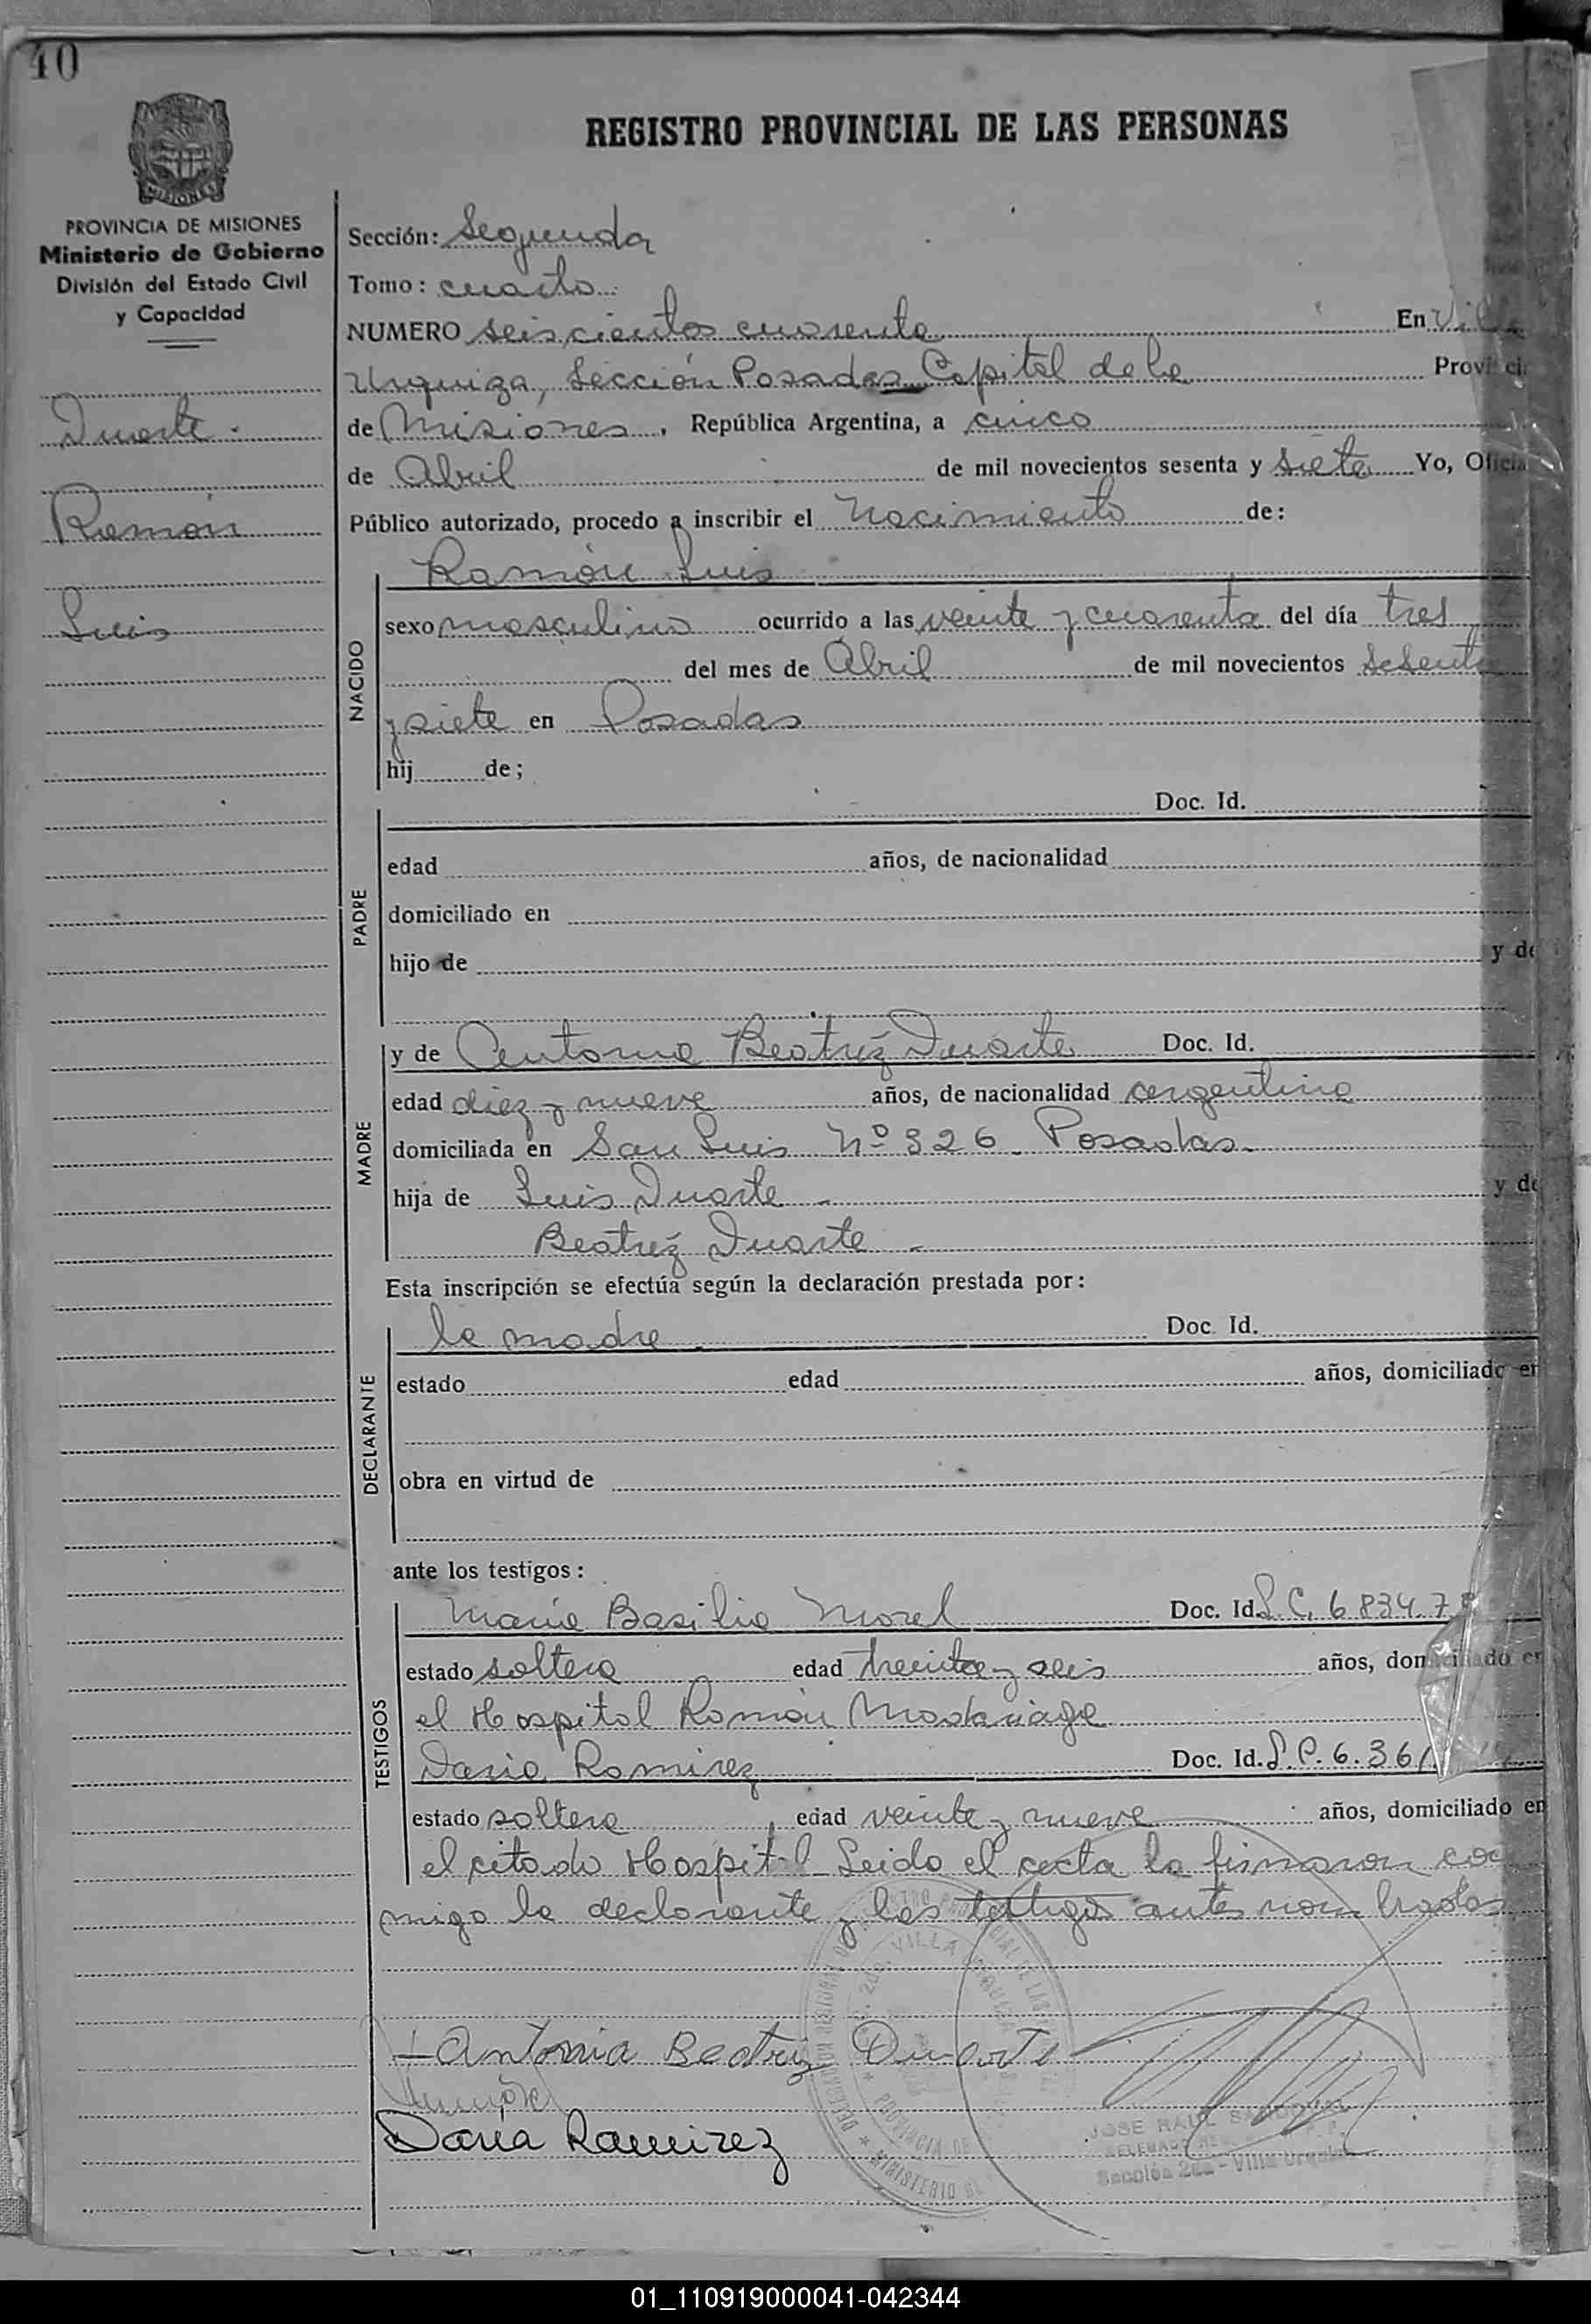 40
REGISTRO PROVINCIAL DE LAS PERSONAS
MISIONES
PROVINCIA DE MISIONES
Ministerio de Gobierno
División del Estado Civil
y Capacidad
Duarte
Ramón
Luis
Sección: Segunda
Tomo: cuarto
NUMERO seiscientos cuarenta En Villa
Urquiza, Sección Posadas Capital de la Provincia
de Misiones, República Argentina, a cinco
de Abril de mil novecientos sesenta y siete Yo, Oficial
Público autorizado, procedo a inscribir el Nacimiento de:
Ramón Luis
NACIDO
sexo masculino ocurrido a las veinte y cuarenta del día tres
del mes de Abril de mil novecientos sesenta
y siete en Posadas
hij de;
PADRE
Doc. Id.
edad años, de nacionalidad
domiciliado en
hijo de y de
MADRE
y de Antonia Beatríz Duarte Doc. Id.
edad diez y nueve años, de nacionalidad argentina
domiciliada en San Luis Nº 326 Posadas.
hija de Luis Duarte y de
Beatríz Duarte
Esta inscripción se efectúa según la declaración prestada por:
DECLARANTE
la madre Doc. Id.
estado edad años, domiciliado en
obra en virtud de
ante los testigos:
TESTIGOS
María Basilia Morel Doc. Id. L.C. 6 834.7
estado soltera edad treinta y seis años, domiciliado en
el Hospital Ramón Madariaga
Daria Ramirez Doc. Id. L.C. 6.361
estado soltera edad veinte y nueve años, domiciliado en
el citado Hospital Leido el acta la firmaron con
migo la declarante y las testigos antes nombradas
Antonia Beatriz Duarte
Daria Ramirez
JOSE RAUL
Sección 2da - Villa Urquiza
VILLA URQUIZA
PROVINCIA DE
MINISTERIO DE
01_110919000041-042344